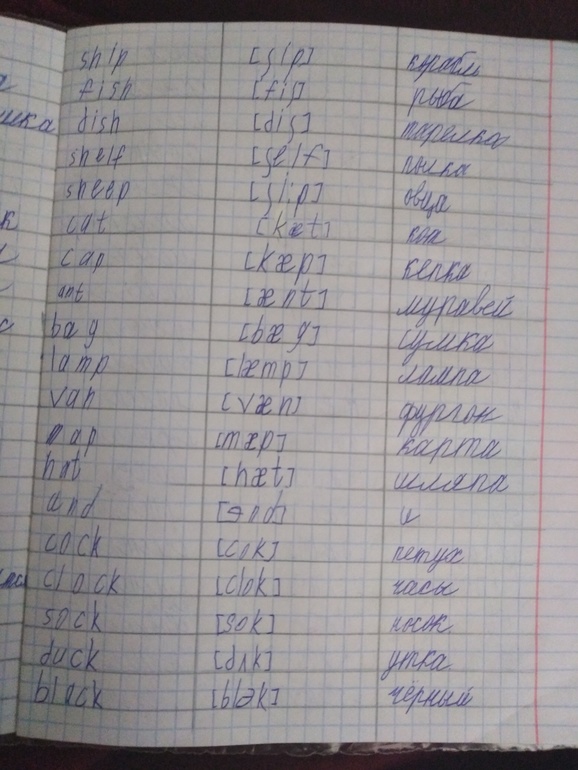 ship [ʃip] корабль
fish [fiʃ] рыба
dish [diʃ] тарелка
shelf [ʃelf] полка
sheep [ʃi:p] овца
cat [kæt] кот
cap [kæp] кепка
ant [ænt] муравей
bag [bæg] сумка
lamp [læmp] лампа
van [væn] фургон
map [mæp] карта
hat [hæt] шляпа
and [ənd] и
cock [cok] петух
clock [clok] часы
sock [sok] носок
duck [dʌk] утка
black [blək] чёрный